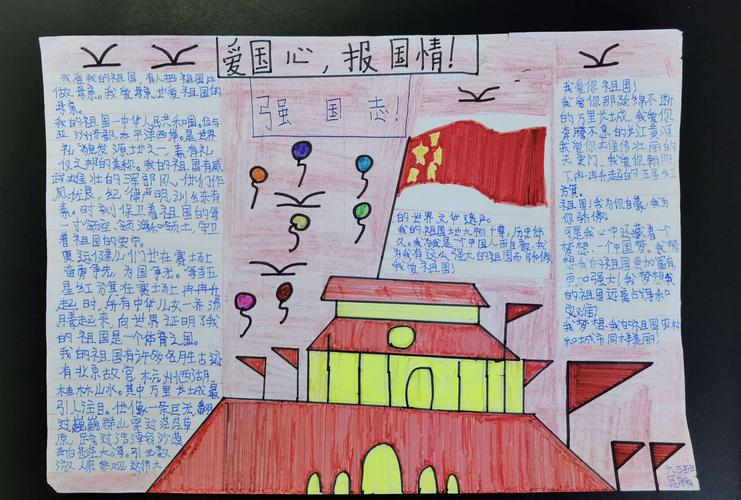 爱国心，报国情！
强国志！
我爱我的祖国，有人把祖国比
做母亲。我爱母亲也爱祖国的
母亲。
我的祖国一中华人民共和国。位与
亚州东部，太平洋西岸。是世界
礼貌发源土也之一，素有礼
仪之邦的美称。我的祖国有威
武雄壮的军部队，他们作
风优良，纪律严明，训练有
素。时刻保卫着祖国的每
一寸领空、领海和领土，守卫
着祖国的安宁。
奥运健儿们在赛土场
奋勇争先，为国争光。每当五
星红旗在赛土场上冉冉升
起时，所有中华儿女一齐沸
月腾起来，向世界证明了我
的祖国是一个体育之国。
我的祖国有许多名月生古迹
有北京故宫、杭州西湖、
桂林山水。其中万里长城最
引人注目。他像一条巨龙，翻
过巍巍群山，穿过茫茫草
原，
奔向苍茫大海。引无数
的世界文华遗产。
我的祖国地大物博，历史悠
久。我为我是一个中国人而自豪，我
为我有这么强大的祖国而骄傲
我爱祖国！
我爱你祖国！
我爱你那延绵不断
的万里长城，我爱你
奔腾不息的长江黄河
我爱你出雄伟壮丽的
天安门，我爱你朝阳
下冉冉升起的五星红
旗。
祖国！我为你自豪，我为
你骄傲。
可是我心中还藏着一个
梦想，一个中国梦。我梦
想我的祖国更加富有，
更加强土！我梦想我
的祖国远离战争永
我梦想我的祖国农村
和城市同样美丽！